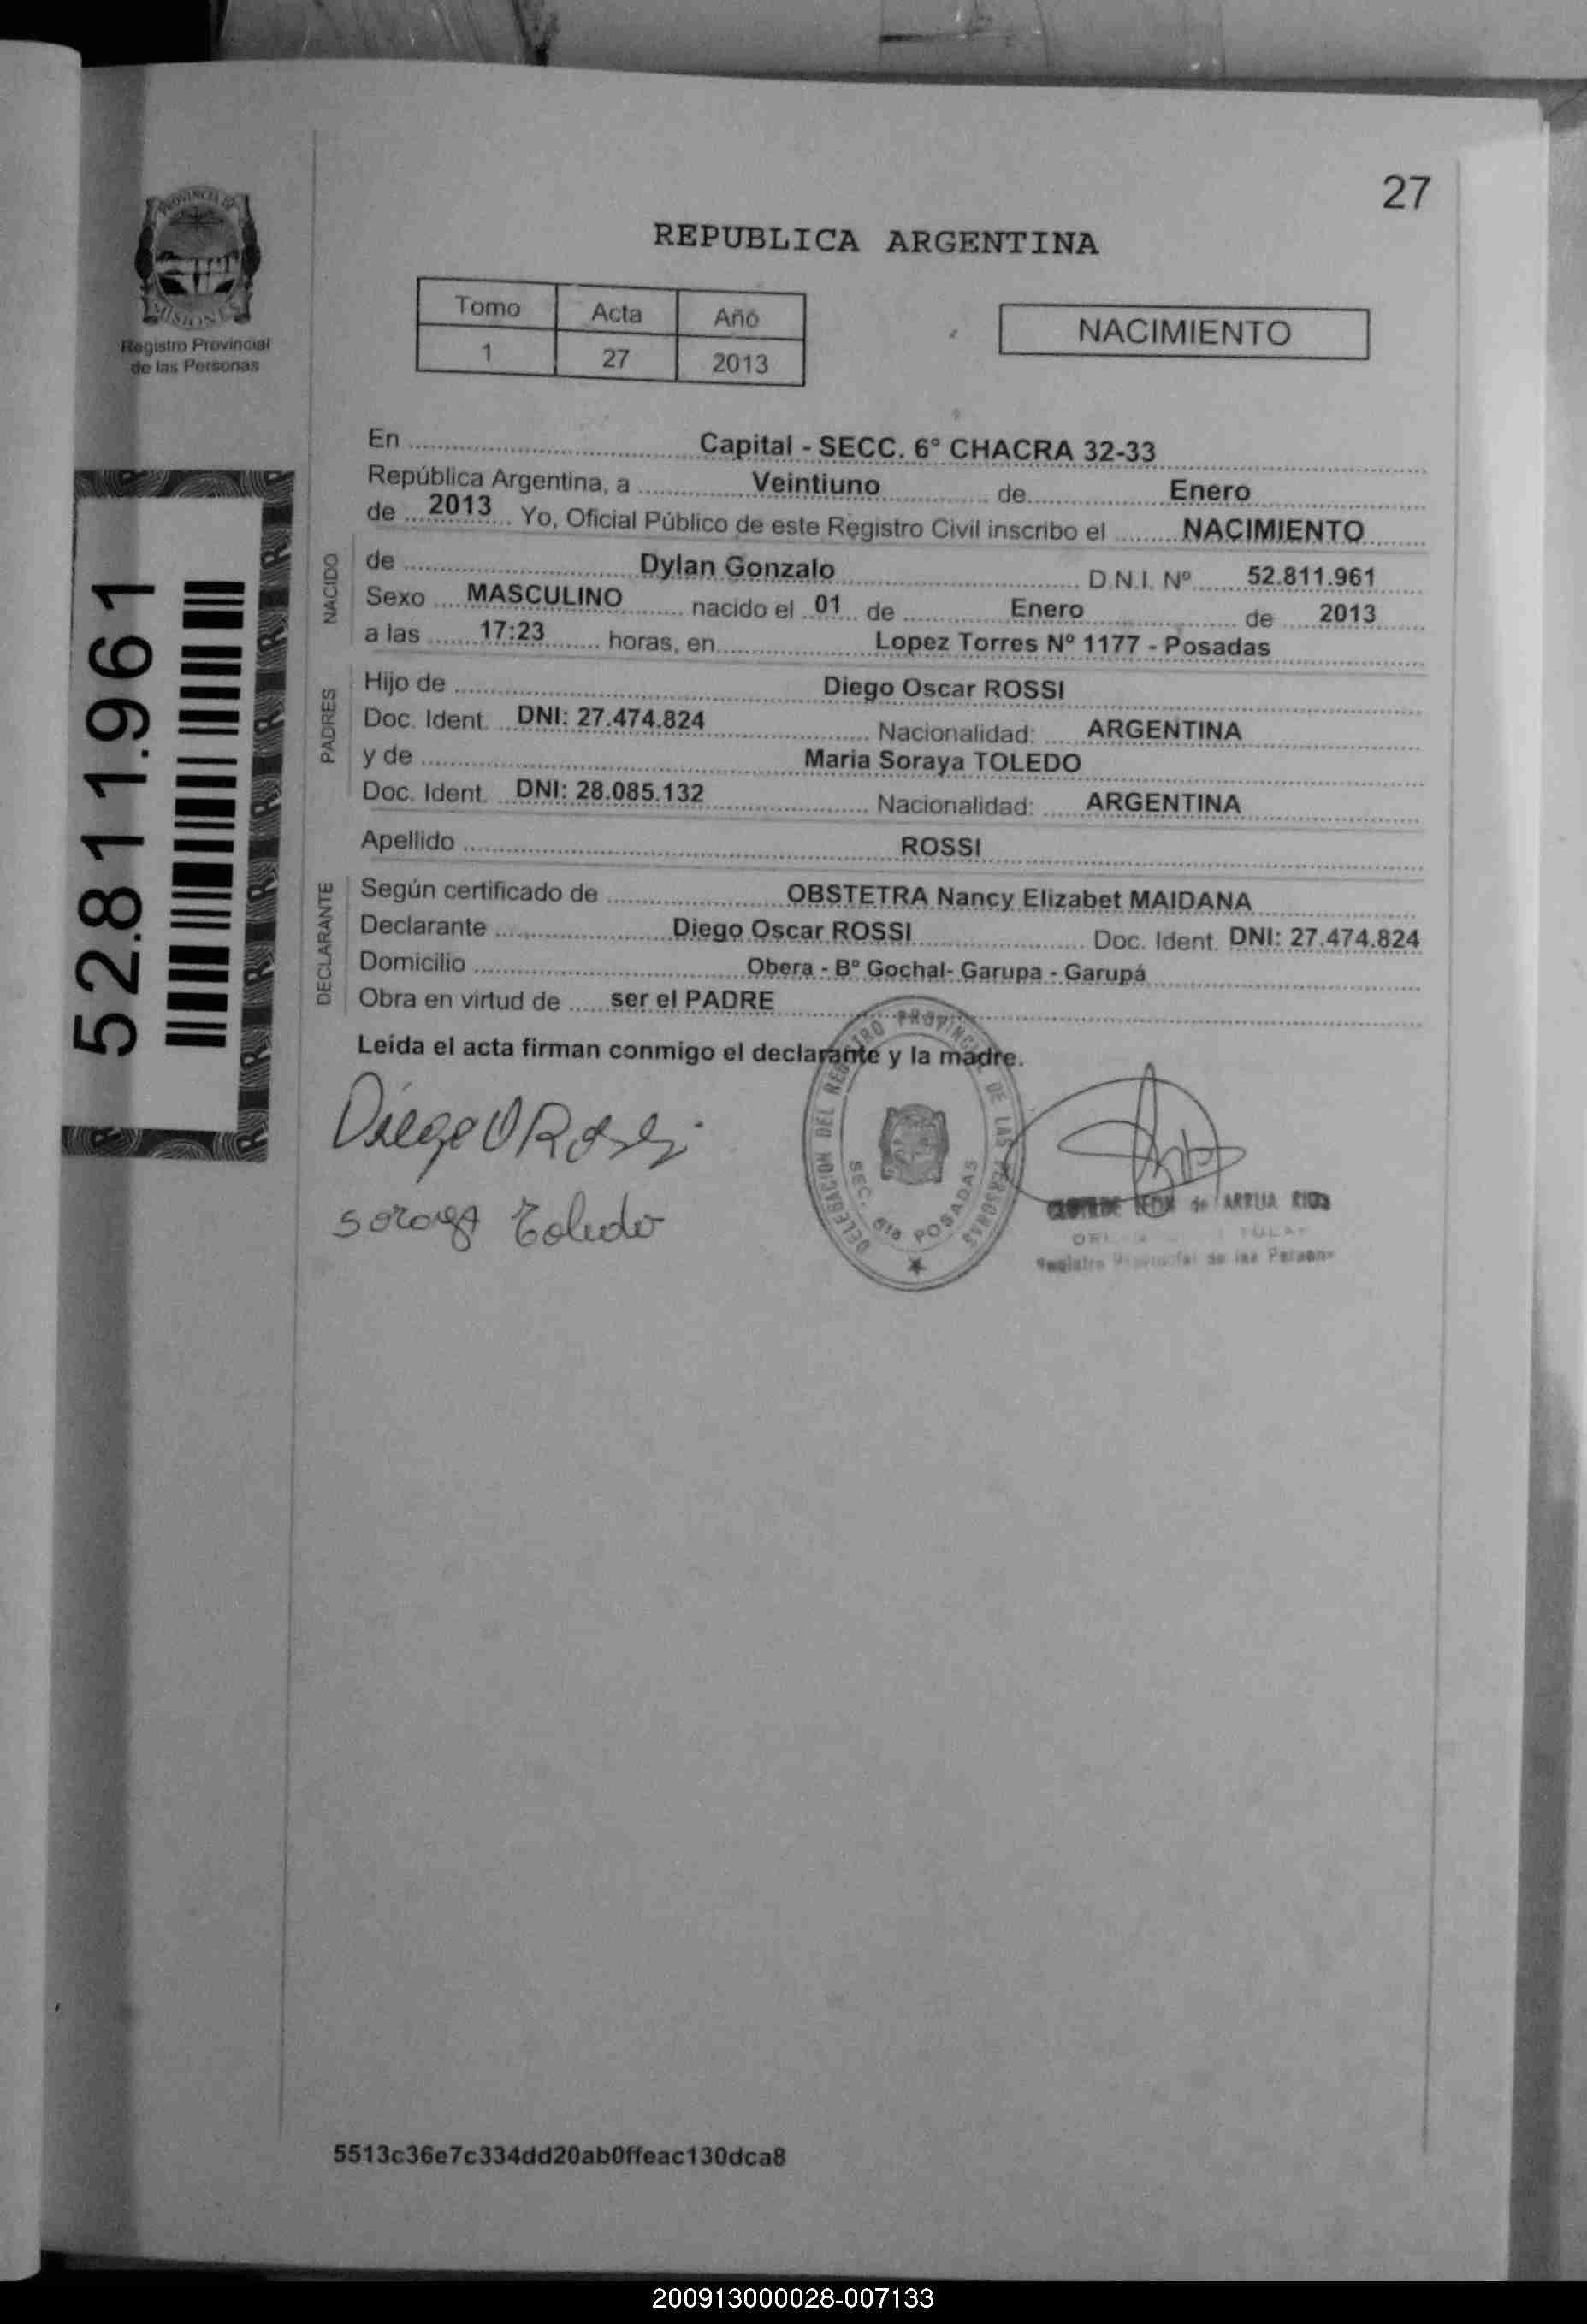 27
PROVINCIA DE
MISIONES
Registro Provincial
de las Personas
REPUBLICA ARGENTINA
Tomo Acta Año
1 27 2013
NACIMIENTO
En Capital - SECC. 6º CHACRA 32-33
República Argentina, a Veintiuno de Enero
de 2013 Yo, Oficial Público de este Registro Civil inscribo el NACIMIENTO
NACIDO
de Dylan Gonzalo D.N.I. Nº 52.811.961
Sexo MASCULINO nacido el 01 de Enero de 2013
a las 17:23 horas, en Lopez Torres Nº 1177 - Posadas
PADRES
Hijo de Diego Oscar ROSSI
Doc. Ident. DNI: 27.474.824 Nacionalidad: ARGENTINA
y de Maria Soraya TOLEDO
Doc. Ident. DNI: 28.085.132 Nacionalidad: ARGENTINA
Apellido ROSSI
DECLARANTE
Según certificado de OBSTETRA Nancy Elizabet MAIDANA
Declarante Diego Oscar ROSSI Doc. Ident. DNI: 27.474.824
Domicilio Obera - Bº Gochal- Garupa - Garupá
Obra en virtud de ser el PADRE
Leída el acta firman conmigo el declarante y la madre.
52.811.961
Diego O Rossi
Soraya Toledo
DELEGACION DEL REGISTRO PROVINCIAL DE LAS PERSONAS
SEC. 6ta POSADAS
de ARRUA
Registro Provincial de las
5513c36e7c334dd20ab0ffeac130dca8
200913000028-007133